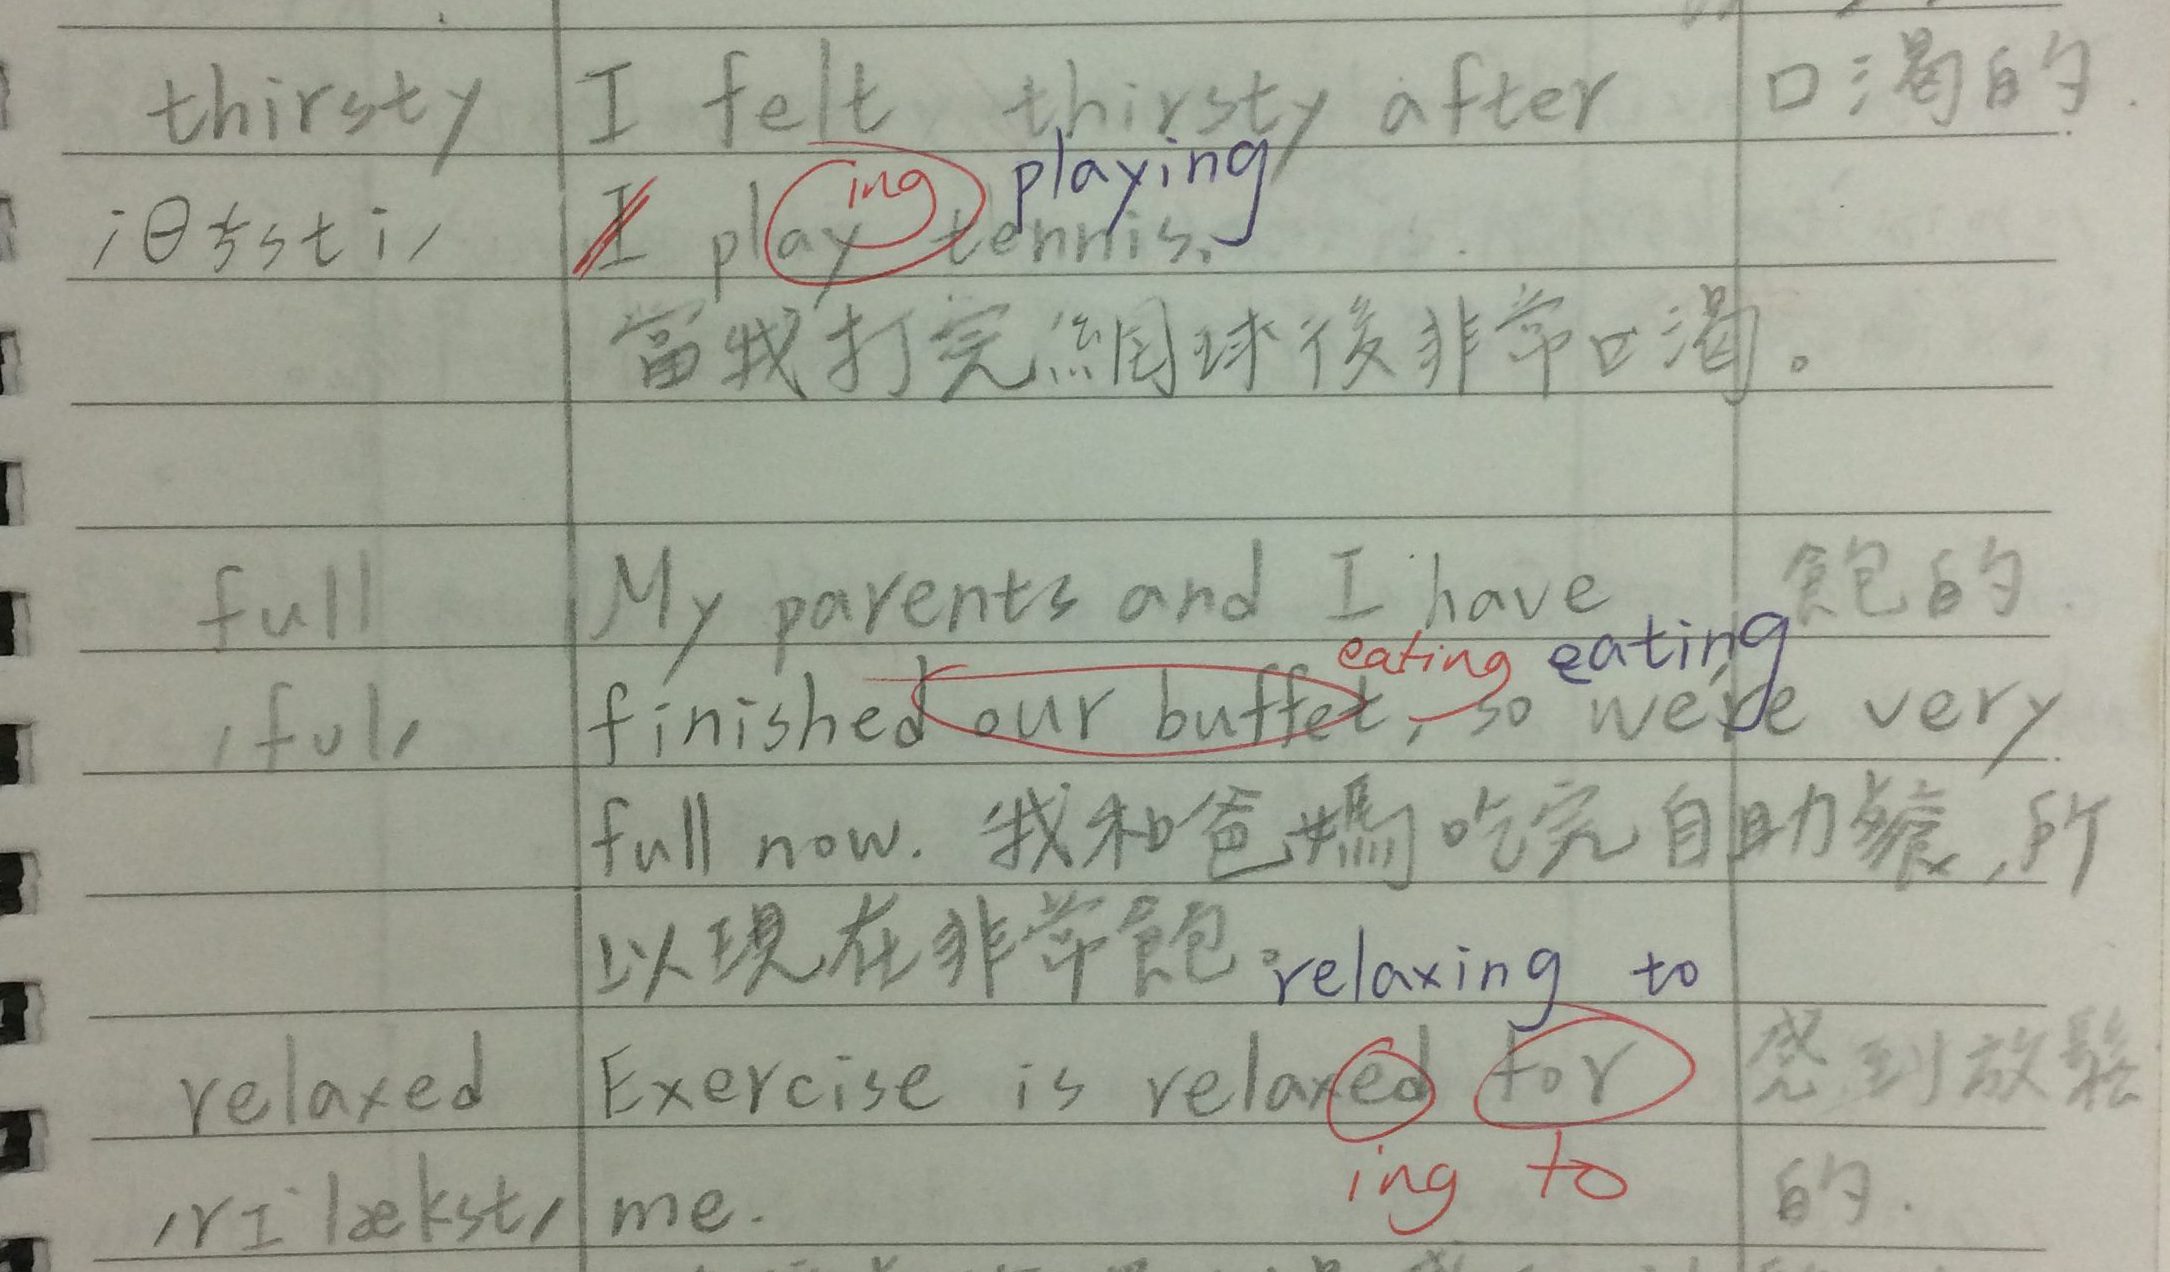 thirsty I felt thirsty after 口渴的.
ing playing
I play tennis.
當我打完網球後非常口渴。
full My parents and I have 飽的.
eating eating
/ful/ finished our buffet, so we're very
full now. 我和爸媽吃完自助餐,所
以現在非常飽。
relaxing to
relaxed Exercise is relaxed for 感到放鬆
ing to
/rɪˈlækst/ me. 的.